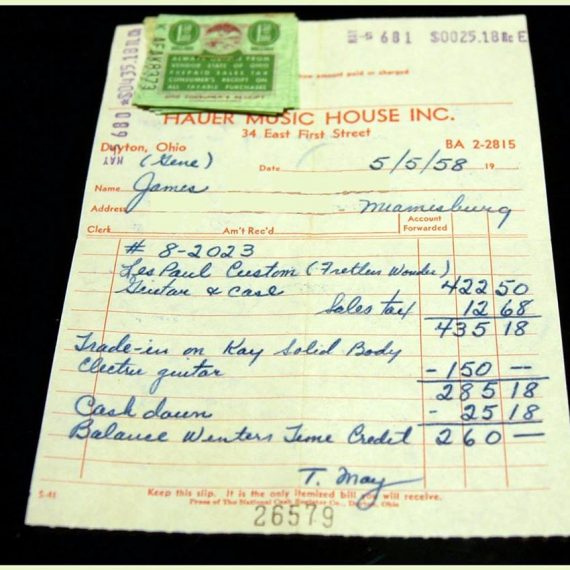 681 $0025.18
$0435.18
680
1 1
ALWAYS
FROM
VENDOR STATE OF OHIO
PREPAID SALES TAX
CONSUMER'S RECEIPT ON
ALL TAXABLE PURCHASES
amount paid or charged
HAUER MUSIC HOUSE INC.
34 East First Street
Dayton, Ohio BA 2-2815
(Gene) Date 5/5/58 19
Name James
Address Miamesburg
Clerk Am't Rec'd Account Forwarded
# 8-2023
Les Paul Custom (Fretless Wonder)
Guitar & Case 422 50
Sales tax 12 68
435 18
Trade-in on Kay Solid Body
Electric guitar - 150 --
285 18
Cash down - 25 18
Balance Winters Time Credit 260 —
T. May
S-41 Keep this slip. It is the only itemized bill you will receive.
Press of The National Cash Register Co., Dayton, Ohio
26579